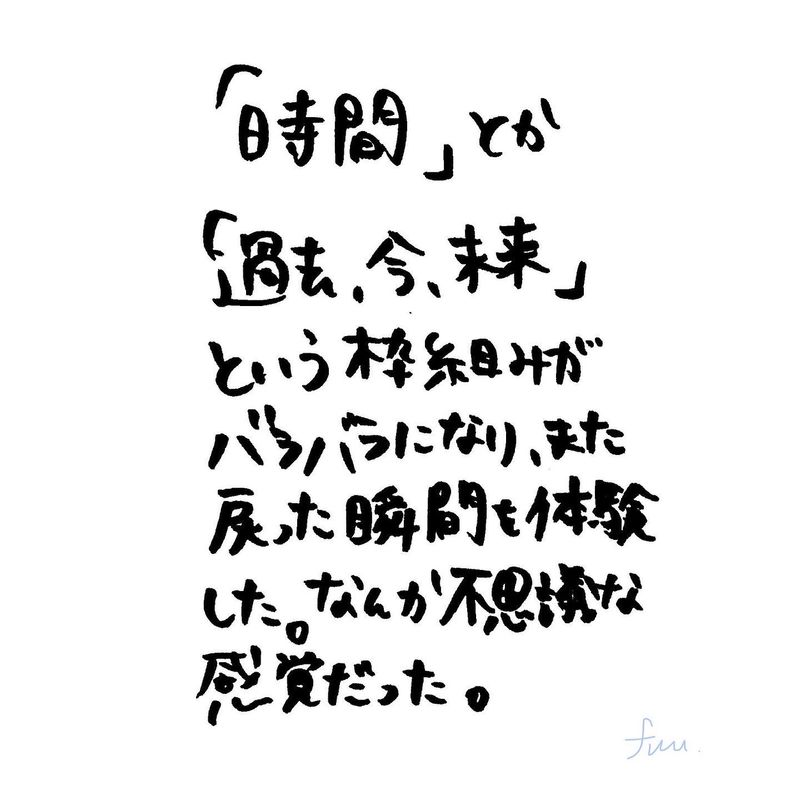 「時間」とか
「過去、今、未来」
という枠組みが
バラバラになり、また
戻った瞬間を体験
した。なんか不思議な
感覚だった。
fuu.